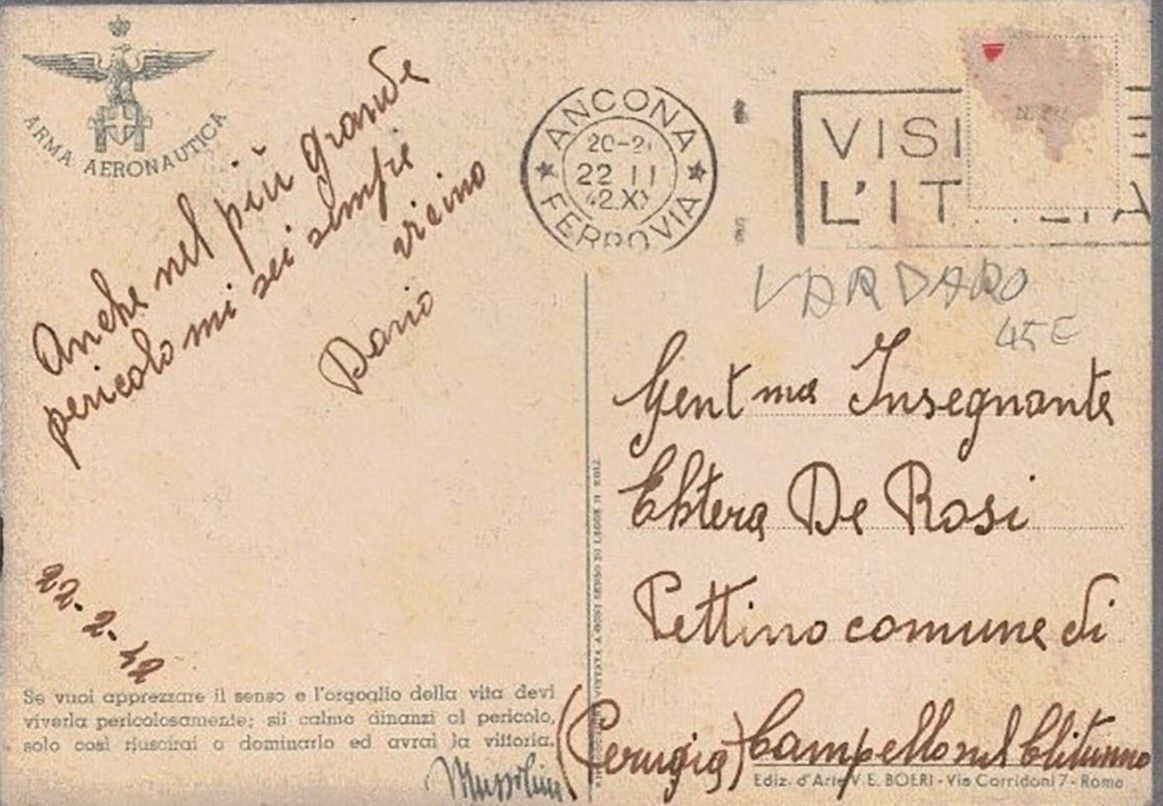 ARMA AERONAUTICA
Anche nel più grande
pericolo mi sei sempre
vicino
Dario
22-2-42
Se vuoi apprezzare il senso e l'orgoglio della vita devi
viverla pericolosamente; sii calmo dinanzi al pericolo,
solo così riuscirai a dominarlo ed avrai la vittoria.
Mussolini
ANCONA
20-21
22 II
42.XX
FERROVIA
VISI E
L'IT LIA
VARDARO
45€
Gent ma Insegnante
De Rosi
Pettino comune di
(Perugia) Campello sul Clitunno
Ediz. d'Arte V. E. BOERI - Via Corridoni 7 - Roma